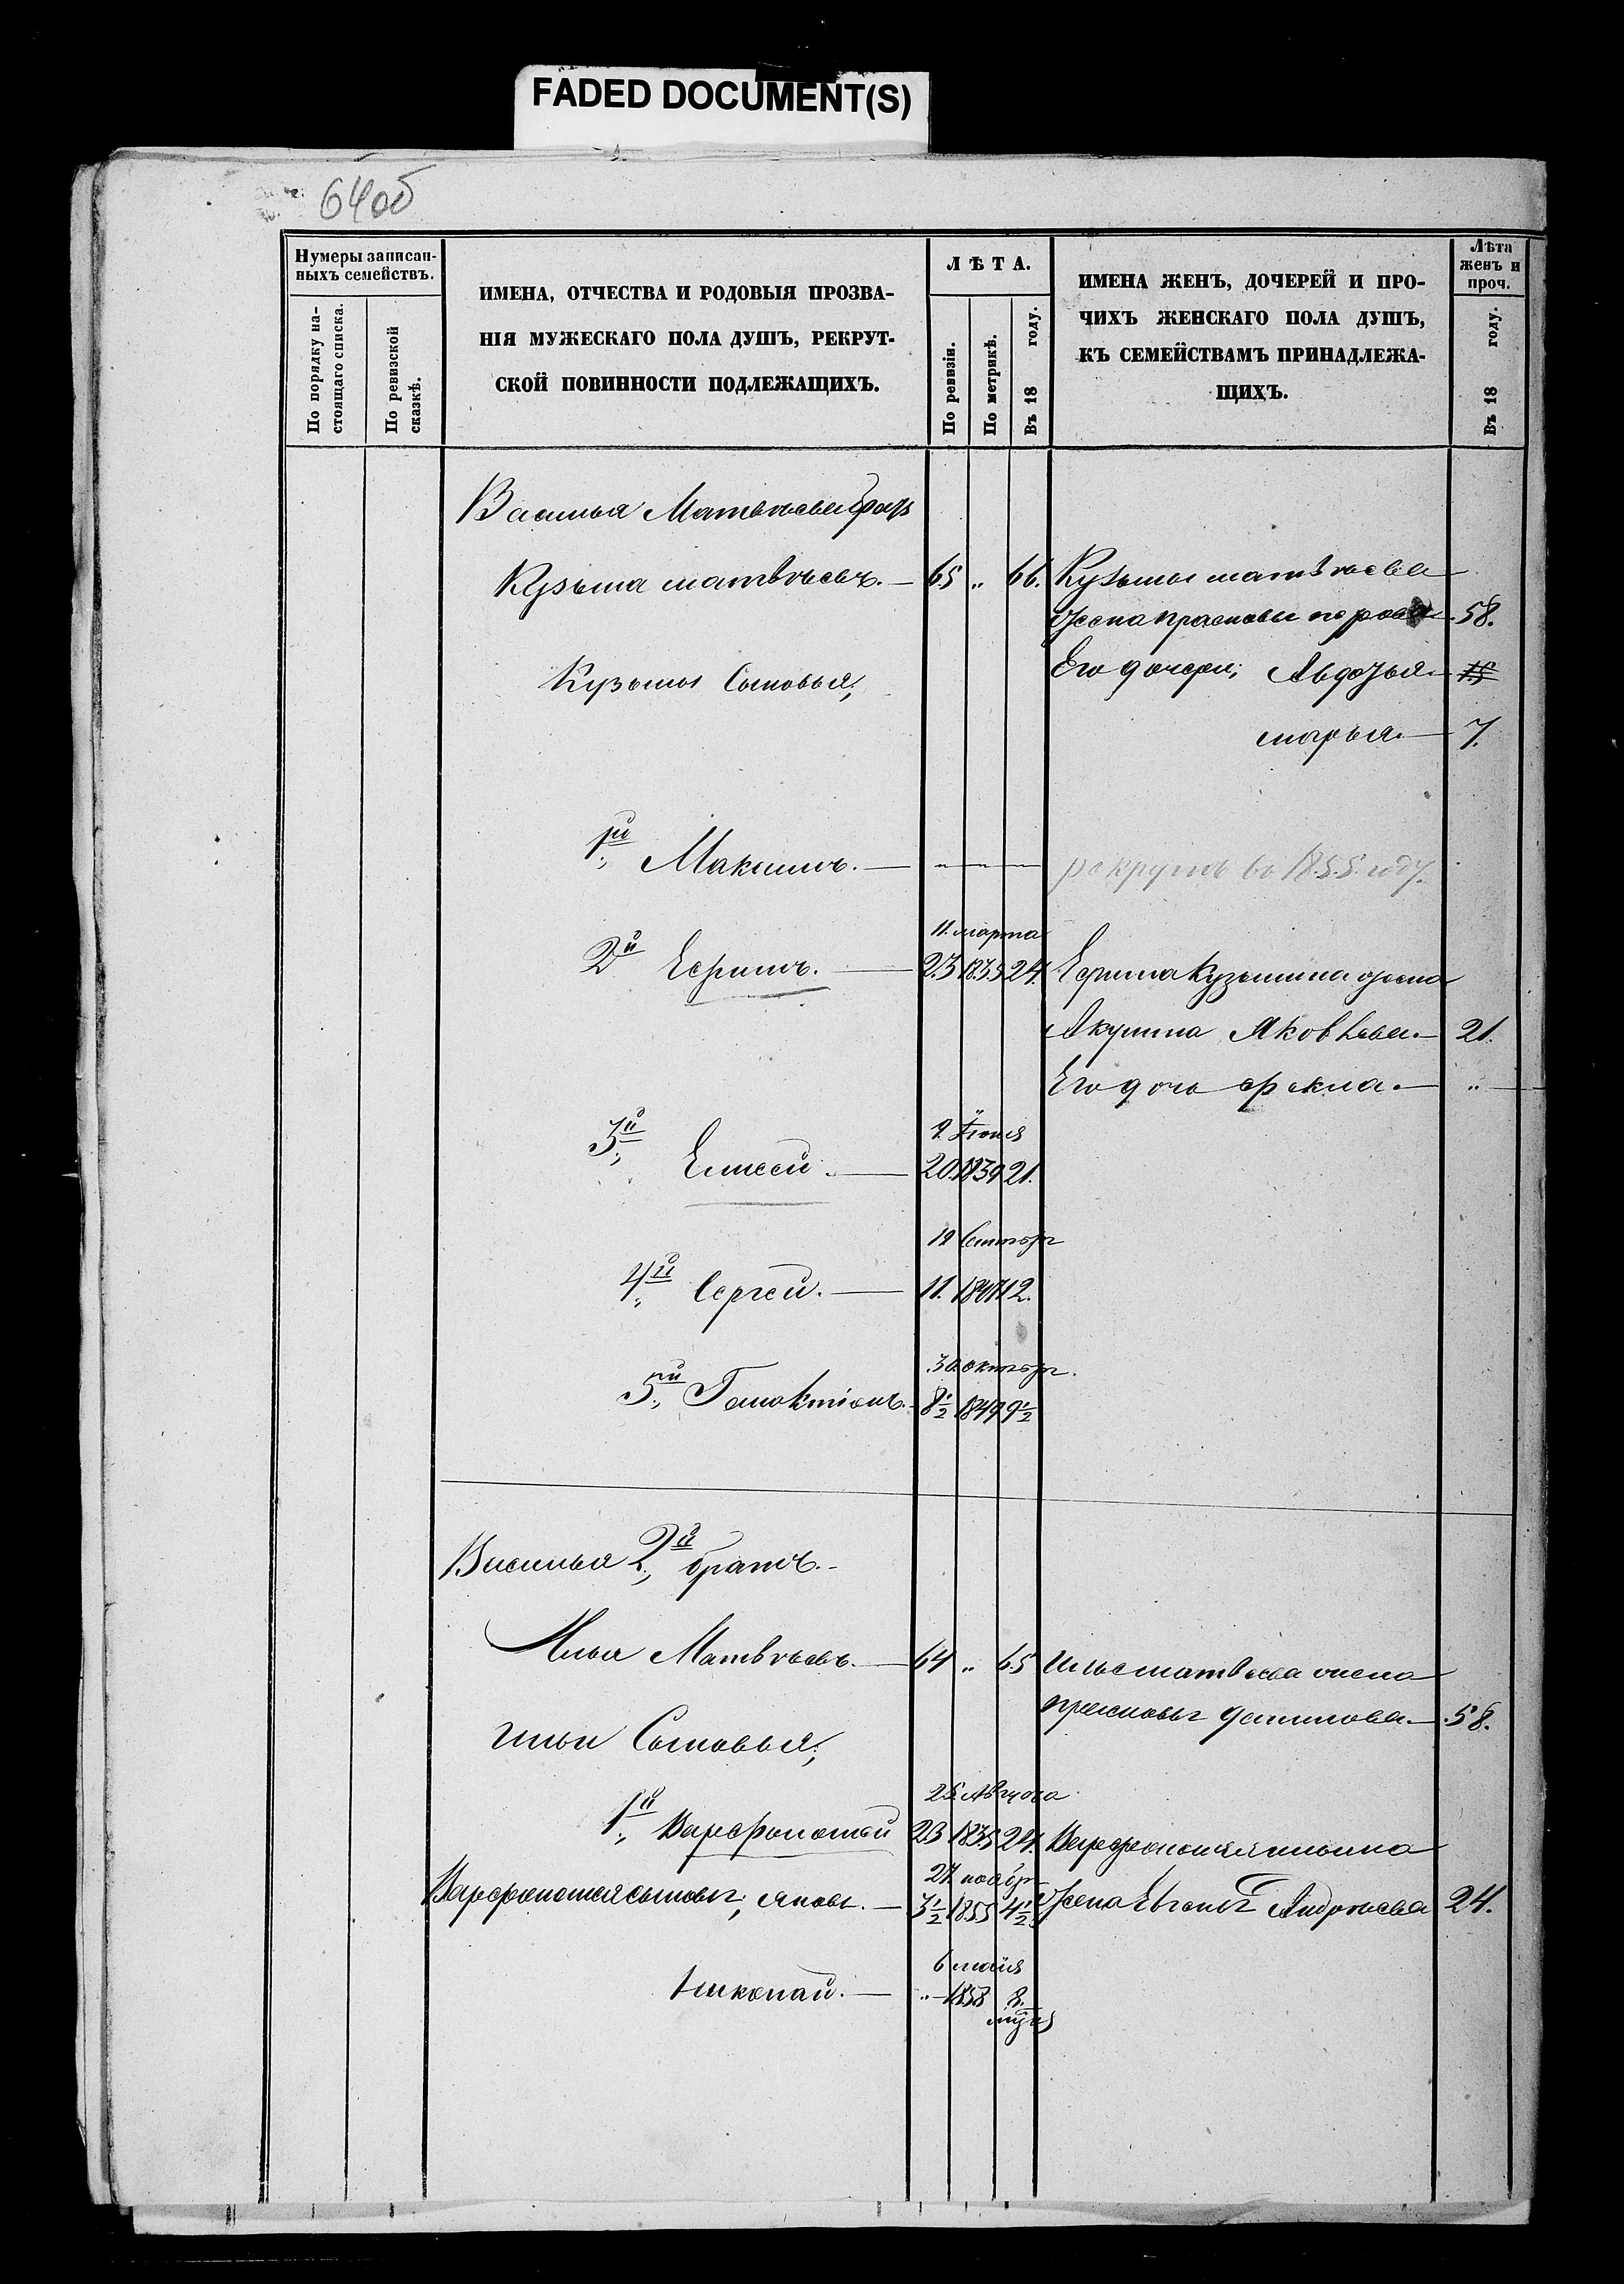 FADED DOCUMENT(S)
64об
Нумеры записан-
ныхъ семействъ.
По порядку на-
стоящаго списка.
По ревизской
сказкѣ.
ИМЕНА, ОТЧЕСТВА И РОДОВЫЯ ПРОЗВА-
НІЯ МУЖЕСКАГО ПОЛА ДУШЪ, РЕКРУТ-
СКОЙ ПОВИННОСТИ ПОДЛЕЖАЩИХЪ.
ЛѢТА.
По ревизіи.
По метрикѣ.
Въ 18 году.
ИМЕНА ЖЕНЪ, ДОЧЕРЕЙ И ПРО-
ЧИХЪ ЖЕНСКАГО ПОЛА ДУШЪ,
КЪ СЕМЕЙСТВАМЪ ПРИНАДЛЕЖА-
ЩИХЪ.
Лѣта
женъ и
проч.
Въ 18 году.
Василья Матвѣева братъ
Кузьма матвѣевъ. — 65 „ 66. Кузьмы матвѣева
жена прасковья 58.
Кузьмы Сыновья; Его дочери; Авдотья. — 15
марья. — 7.
1й Максимъ. — рекрутъ въ 1855 году.
11. марта
2й Ефимъ. — 23 1835 24. Ефима Кузьмина жена
Акулина Яковлева. — 21.
Его дочь фекла. — „
9. Іюня
3й Елисей. — 20. 1839 21.
19 Сентябр
4й Сергей. — 11. 1847 12.
30. октябр.
5й Галактіонъ. 8½ 1849 9½
Василья 2й братъ.
Илья Матвѣевъ. — 64 „ 65 Ильи матвѣева жена
прасковья данилова. — 58.
Ильи Сыновья;
25. Августа
1й Варфоломей 23 1835 24. Варфоломея ильина
27. ноябр
Варфоломея сыновья; Яковъ. — 3½ 1855 4½ жена Евгенья Андрѣева 24.
6 майя
Николай. — „ 1858 8.